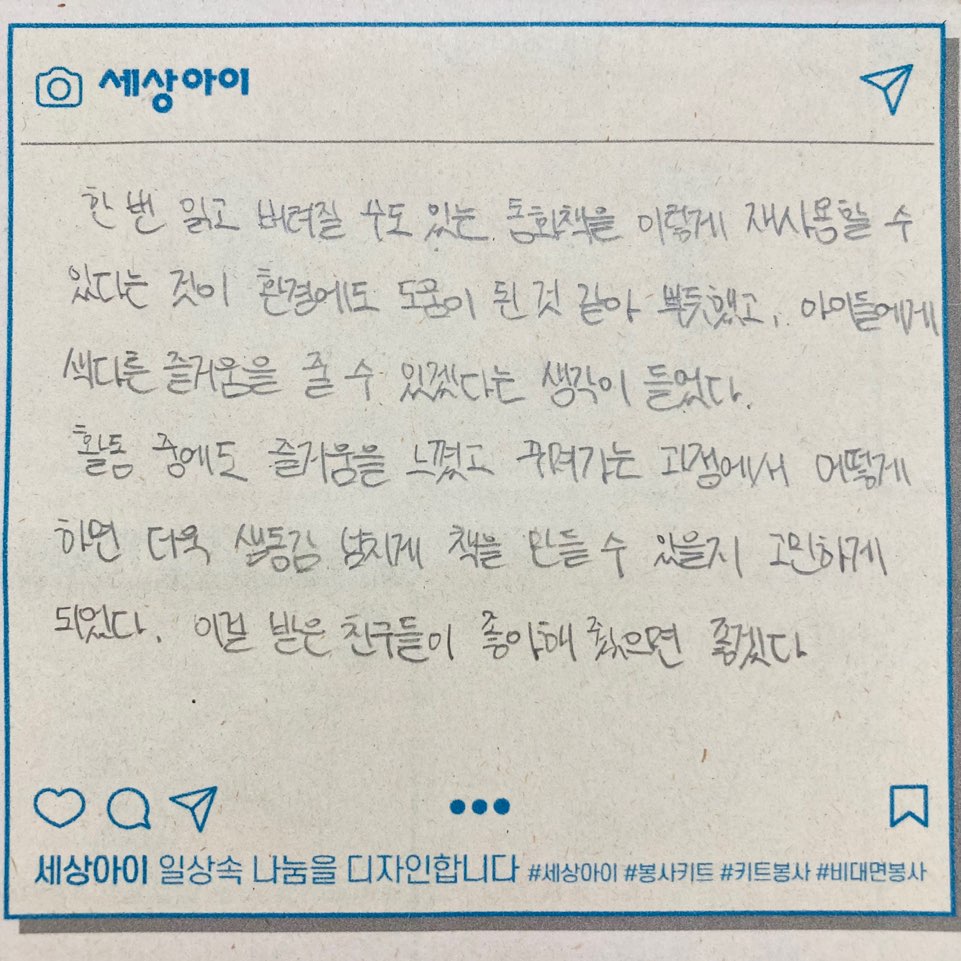 세상아이
한 번 읽고 버려질 수도 있는 동화책을 이렇게 재사용할 수
있다는 것이 환경에도 도움이 된 것 같아 뿌듯했고, 아이들에게
색다른 즐거움을 줄 수 있겠다는 생각이 들었다.
활동 중에도 즐거움을 느꼈고 꾸며가는 과정에서 어떻게
하면 더욱 생동감 넘치게 책을 만들 수 있을지 고민하게
되었다. 이걸 받은 친구들이 좋아해 줬으면 좋겠다
세상아이 일상속 나눔을 디자인합니다 #세상아이 #봉사키트 #키트봉사 #비대면봉사